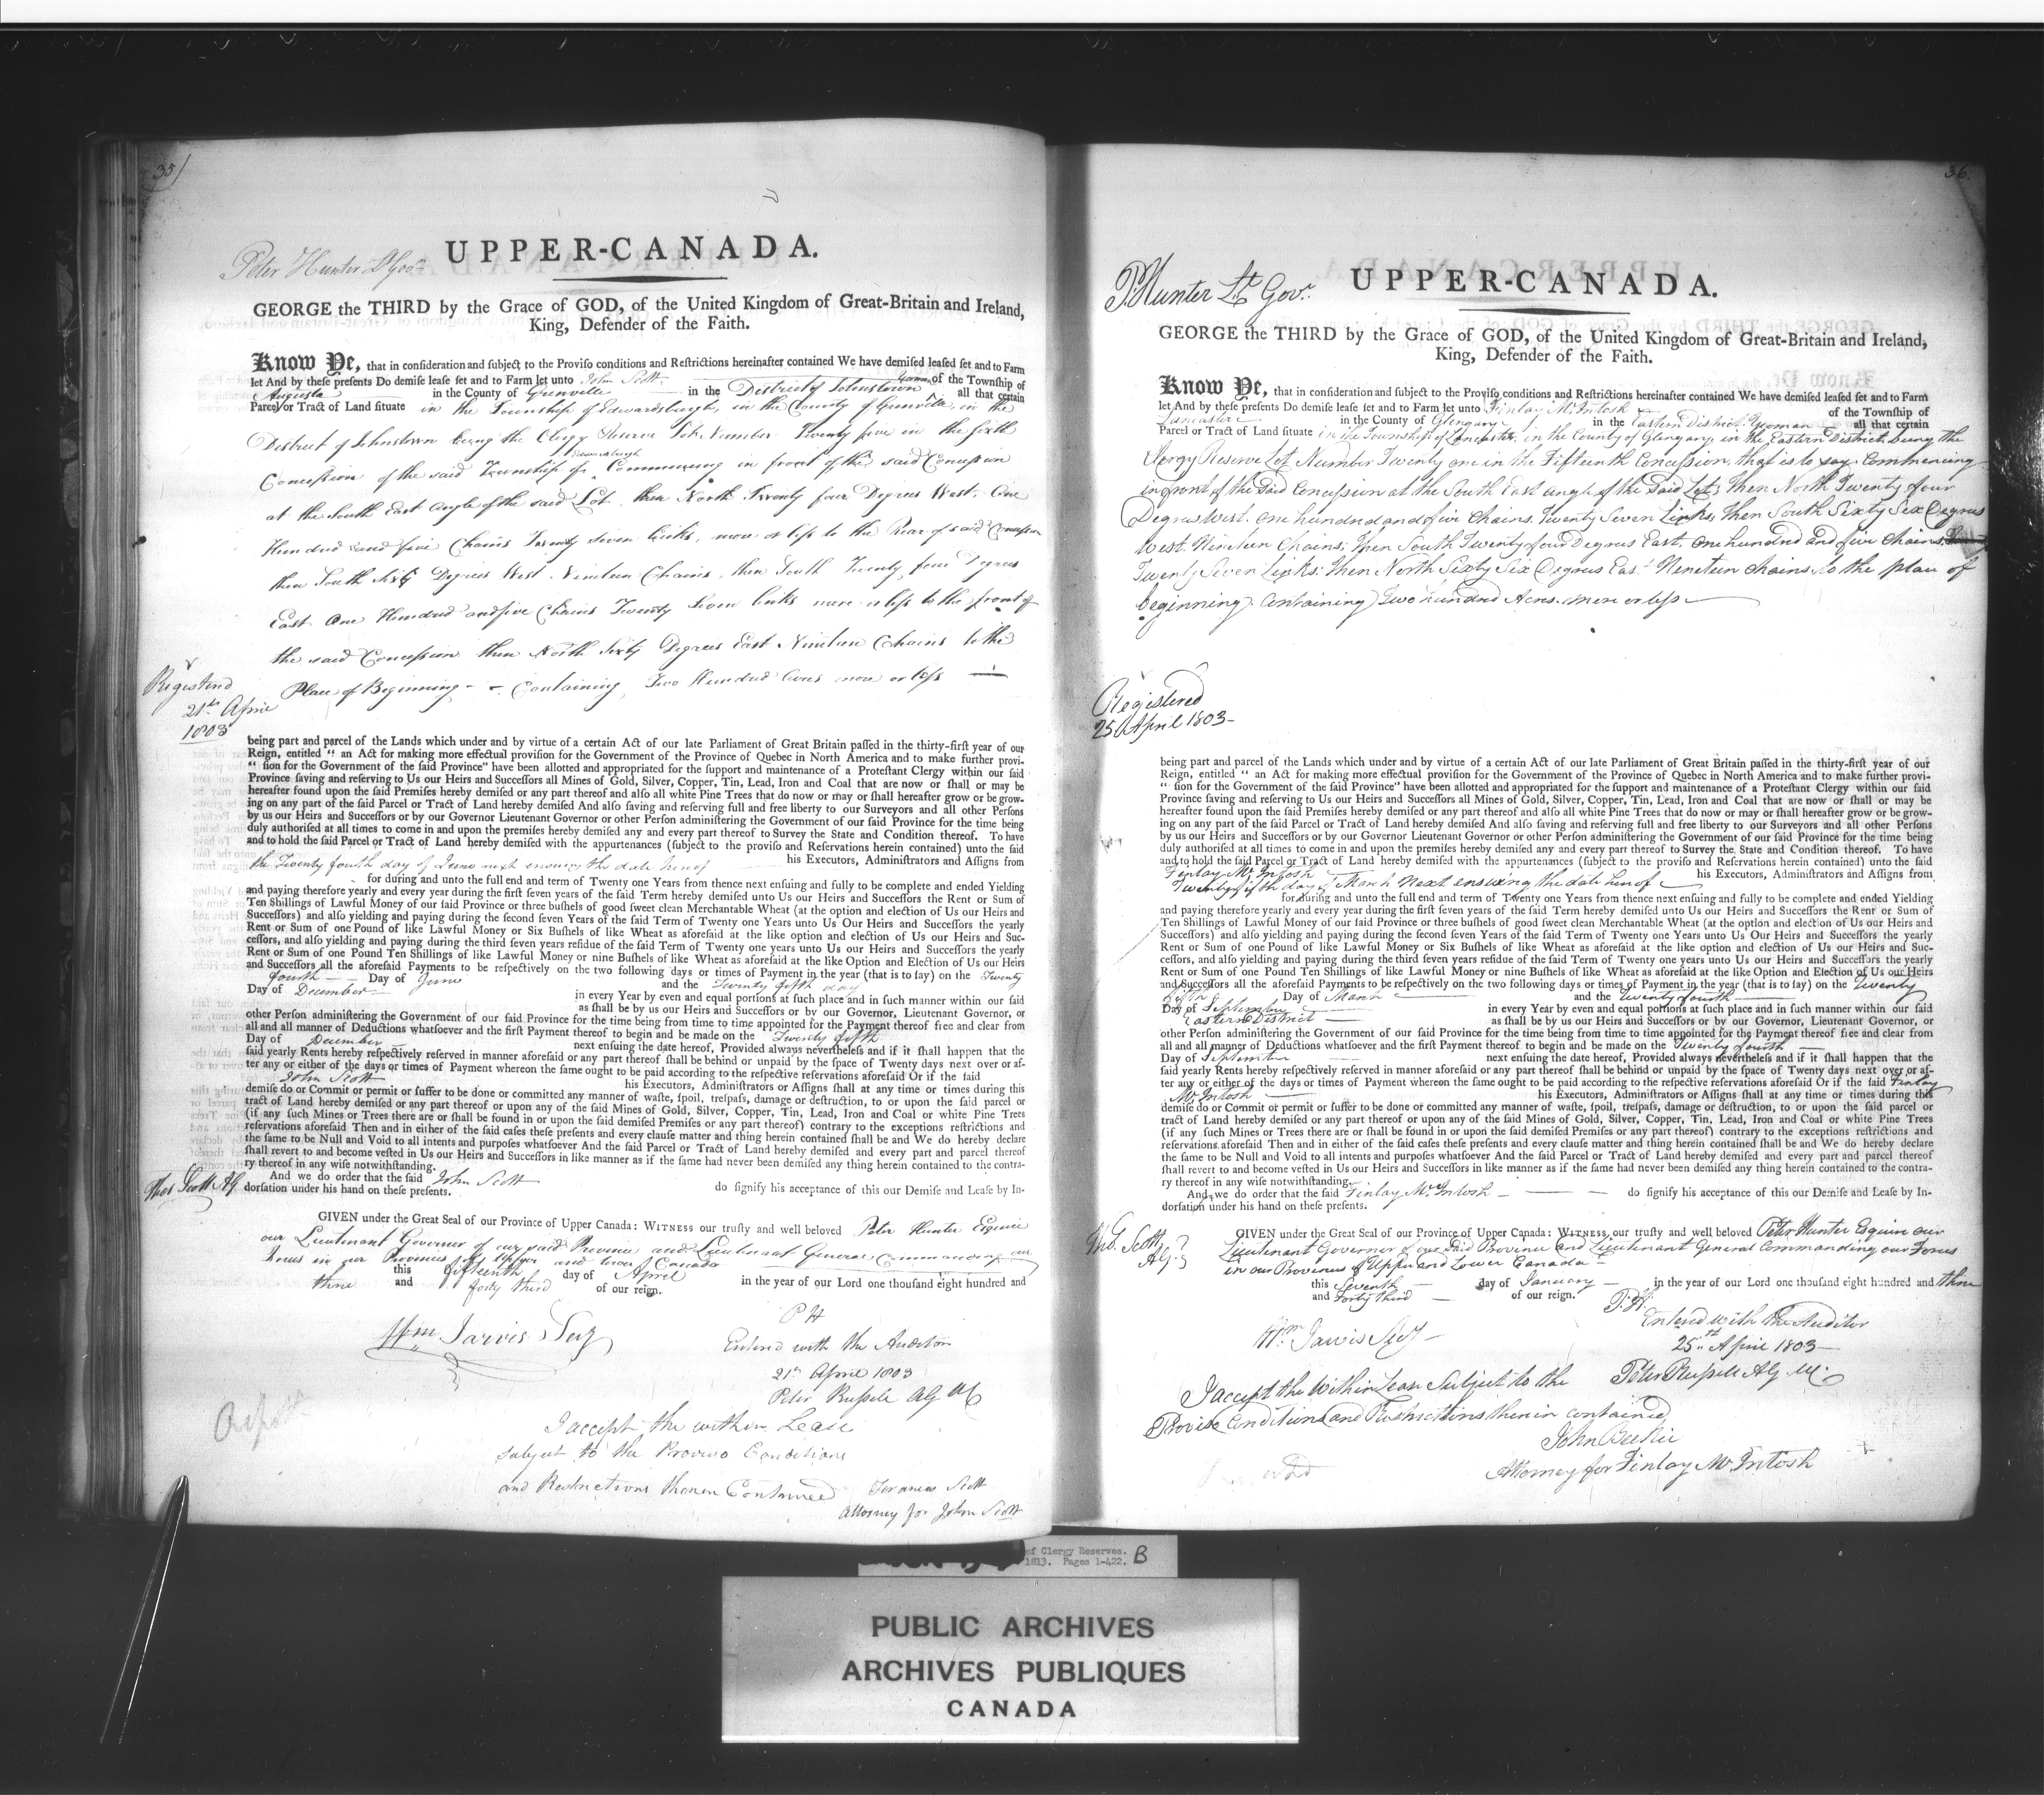 35
Peter Hunter Lt Govr
UPPER-CANADA.
GEORGE the THIRD by the Grace of GOD, of the United Kingdom of Great-Britain and Ireland,
King, Defender of the Faith.
Know Ye, that in consideration and subject to the Proviso conditions and Restrictions hereinafter contained We have demised leased set and to Farm
let And by these presents Do demise lease set and to Farm let unto John Scott Yeoman of the Township of
Augusta in the County of Grenville in the District of Johnstown all that certain
Parcel or Tract of Land situate in the Township of Edwardsburgh, in the County of Grenville, in the
District of Johnstown being the Clergy Reserve Lot Number Twenty five in the sixth
Concession of the said Township of Edwardsburgh Commencing in front of the said Concession
at the South East angle of the said Lot, then North Twenty four Degrees West, One
Hundred and five Chains Twenty seven links, more or less to the Rear of said Concession
then South Sixty Degrees West Nineteen Chains, then South Twenty four Degrees
East One Hundred and five Chains Twenty Seven links more or less to the front of
the said Concession then North Sixty Degrees East Nineteen Chains to the
Place of Beginning - - Containing Two Hundred Acres more or less
Registered
21st April
1803
being part and parcel of the Lands which under and by virtue of a certain Act of our late Parliament of Great Britain passed in the thirty-first year of our
Reign, entitled "an Act for making more effectual provision for the Government of the Province of Quebec in North America and to make further provi-
"sion for the Government of the said Province" have been allotted and appropriated for the support and maintenance of a Protestant Clergy within our said
Province saving and reserving to Us our Heirs and Successors all Mines of Gold, Silver, Copper, Tin, Lead, Iron and Coal that are now or shall or may be
hereafter found upon the said Premises hereby demised or any part thereof and also all white Pine Trees that do now or may or shall hereafter grow or be grow-
ing on any part of the said Parcel or Tract of Land hereby demised And also saving and reserving full and free liberty to our Surveyors and all other Persons
by us our Heirs and Successors or by our Governor Lieutenant Governor or other Person administering the Government of our said Province for the time being
duly authorised at all times to come in and upon the premises hereby demised any and every part thereof to Survey the State and Condition thereof. To have
and to hold the said Parcel or Tract of Land hereby demised with the appurtenances (subject to the proviso and Reservations herein contained) unto the said
the Twenty fourth day of June next ensuing the date hereof his Executors, Administrators and Assigns from
for during and unto the full end and term of Twenty one Years from thence next ensuing and fully to be complete and ended Yielding
and paying therefore yearly and every year during the first seven years of the said Term hereby demised unto Us our Heirs and Successors the Rent or Sum of
Ten Shillings of Lawful Money of our said Province or three bushels of good sweet clean Merchantable Wheat (at the option and election of Us our Heirs and
Successors) and also yielding and paying during the second seven Years of the said Term of Twenty one Years unto Us Our Heirs and Successors the yearly
Rent or Sum of one Pound of like Lawful Money or Six Bushels of like Wheat as aforesaid at the like option and election of Us our Heirs and Suc-
cessors, and also yielding and paying during the third seven years residue of the said Term of Twenty one years unto Us our Heirs and Successors the yearly
Rent or Sum of one Pound Ten Shillings of like Lawful Money or nine Bushels of like Wheat as aforesaid at the like Option and Election of Us our Heirs
and Successors all the aforesaid Payments to be respectively on the two following days or times of Payment in the year (that is to say) on the Twenty
fourth Day of June and the Twenty fifth day
Day of December in every Year by even and equal portions at such place and in such manner within our said
as shall be by us our Heirs and Successors or by our Governor, Lieutenant Governor, or
other Person administering the Government of our said Province for the time being from time to time appointed for the Payment thereof free and clear from
all and all manner of Deductions whatsoever and the first Payment thereof to begin and be made on the Twenty fifth
Day of December next ensuing the date hereof, Provided always nevertheless and if it shall happen that the
said yearly Rents hereby respectively reserved in manner aforesaid or any part thereof shall be behind or unpaid by the space of Twenty days next over or af-
ter any or either of the days or times of Payment whereon the same ought to be paid according to the respective reservations aforesaid Or if the said
John Scott his Executors, Administrators or Assigns shall at any time or times during this
demise do or Commit or permit or suffer to be done or committed any manner of waste, spoil, trespass, damage or destruction, to or upon the said parcel or
tract of Land hereby demised or any part thereof or upon any of the said Mines of Gold, Silver, Copper, Tin, Lead, Iron and Coal or white Pine Trees
(if any such Mines or Trees there are or shall be found in or upon the said demised Premises or any part thereof) contrary to the exceptions restrictions and
reservations aforesaid Then and in either of the said cases these presents and every clause matter and thing herein contained shall be and We do hereby declare
the same to be Null and Void to all intents and purposes whatsoever And the said Parcel or Tract of Land hereby demised and every part and parcel thereof
shall revert to and become vested in Us our Heirs and Successors in like manner as if the same had never been demised any thing herein contained to the contra-
ry thereof in any wise notwithstanding.
Thos Scott AG
And we do order that the said John Scott do signify his acceptance of this our Demise and Lease by In-
dorsation under his hand on these presents.
GIVEN under the Great Seal of our Province of Upper Canada: WITNESS our trusty and well beloved Peter Hunter Esquire
our Lieutenant Governor of our said Province and Lieutenant General Commanding our
Forces in our Provinces of Upper and Lower Canada
this fifteenth day of April in the year of our Lord one thousand eight hundred and
three and forty third of our reign.
P H
Wm Jarvis Secy
Entered with the Auditor
21st April 1803
Peter Russell AG
I accept the within Lease
subject to the Proviso Conditions
and Restrictions therein Contained
Scott
Attorney for John Scott
36.
P. Hunter Lt. Govr.
UPPER-CANADA.
GEORGE the THIRD by the Grace of GOD, of the United Kingdom of Great-Britain and Ireland,
King, Defender of the Faith.
Know Ye, that in consideration and subject to the Proviso conditions and Restrictions hereinafter contained We have demised leased set and to Farm
let And by these presents Do demise lease set and to Farm let unto Finlay McIntosh of the Township of
Lancaster in the County of Glengary in the Eastern District Yeoman all that certain
Parcel or Tract of Land situate in the Township of Lancaster, in the County of Glengary, in the Eastern District, being the
Clergy Reserve Lot Number Twenty one in the Fifteenth Concession, that is to say: Commencing
in front of the said Concession at the South East angle of the said Lot; then North Twenty four
Degrees West, one hundred and five Chains Twenty Seven Links; then South Sixty Six Degrees
West. Nineteen Chains; then South Twenty four Degrees East, one hundred and five Chains
Twenty Seven Links: then North Sixty Six Degrees East Nineteen Chains, to the place of
beginning: Containing Two hundred Acres more or less
Registered
25 April 1803-
being part and parcel of the Lands which under and by virtue of a certain Act of our late Parliament of Great Britain passed in the thirty-first year of our
Reign, entitled "an Act for making more effectual provision for the Government of the Province of Quebec in North America and to make further provi-
"sion for the Government of the said Province" have been allotted and appropriated for the support and maintenance of a Protestant Clergy within our said
Province saving and reserving to Us our Heirs and Successors all Mines of Gold, Silver, Copper, Tin, Lead, Iron and Coal that are now or shall or may be
hereafter found upon the said Premises hereby demised or any part thereof and also all white Pine Trees that do now or may or shall hereafter grow or be grow-
ing on any part of the said Parcel or Tract of Land hereby demised And also saving and reserving full and free liberty to our Surveyors and all other Persons
by us our Heirs and Successors or by our Governor Lieutenant Governor or other Person administering the Government of our said Province for the time being
duly authorised at all times to come in and upon the premises hereby demised any and every part thereof to Survey the State and Condition thereof. To have
and to hold the said Parcel or Tract of Land hereby demised with the appurtenances (subject to the proviso and Reservations herein contained) unto the said
Finlay McIntosh his Executors, Administrators and Assigns from
Twenty fifth day of March next ensuing the date hereof
for during and unto the full end and term of Twenty one Years from thence next ensuing and fully to be complete and ended Yielding
and paying therefore yearly and every year during the first seven years of the said Term hereby demised unto Us our Heirs and Successors the Rent or Sum of
Ten Shillings of Lawful Money of our said Province or three bushels of good sweet clean Merchantable Wheat (at the option and election of Us our Heirs and
Successors) and also yielding and paying during the second seven Years of the said Term of Twenty one Years unto Us Our Heirs and Successors the yearly
Rent or Sum of one Pound of like Lawful Money or Six Bushels of like Wheat as aforesaid at the like option and election of Us our Heirs and Suc-
cessors, and also yielding and paying during the third seven years residue of the said Term of Twenty one years unto Us our Heirs and Successors the yearly
Rent or Sum of one Pound Ten Shillings of like Lawful Money or nine Bushels of like Wheat as aforesaid at the like Option and Election of Us our Heirs
and Successors all the aforesaid Payments to be respectively on the two following days or times of Payment in the year (that is to say) on the Twenty
fifth Day of March and the Twenty fourth
Day of September in every Year by even and equal portions at such place and in such manner within our said
Eastern District as shall be by us our Heirs and Successors or by our Governor, Lieutenant Governor, or
other Person administering the Government of our said Province for the time being from time to time appointed for the Payment thereof free and clear from
all and all manner of Deductions whatsoever and the first Payment thereof to begin and be made on the Twenty fourth
Day of September next ensuing the date hereof, Provided always nevertheless and if it shall happen that the
said yearly Rents hereby respectively reserved in manner aforesaid or any part thereof shall be behind or unpaid by the space of Twenty days next over or af-
ter any or either of the days or times of Payment whereon the same ought to be paid according to the respective reservations aforesaid Or if the said Finlay
McIntosh his Executors, Administrators or Assigns shall at any time or times during this
demise do or Commit or permit or suffer to be done or committed any manner of waste, spoil, trespass, damage or destruction, to or upon the said parcel or
tract of Land hereby demised or any part thereof or upon any of the said Mines of Gold, Silver, Copper, Tin, Lead, Iron and Coal or white Pine Trees
(if any such Mines or Trees there are or shall be found in or upon the said demised Premises or any part thereof) contrary to the exceptions restrictions and
reservations aforesaid Then and in either of the said cases these presents and every clause matter and thing herein contained shall be and We do hereby declare
the same to be Null and Void to all intents and purposes whatsoever And the said Parcel or Tract of Land hereby demised and every part and parcel thereof
shall revert to and become vested in Us our Heirs and Successors in like manner as if the same had never been demised any thing herein contained to the contra-
ry thereof in any wise notwithstanding.
And we do order that the said Finlay McIntosh do signify his acceptance of this our Demise and Lease by In-
dorsation under his hand on these presents.
Tho. Scott
AG.
GIVEN under the Great Seal of our Province of Upper Canada: WITNESS our trusty and well beloved Peter Hunter Esquire our
Lieutenant Governor of our said Province and Lieutenant General Commanding our Forces
in our Provinces of Upper and Lower Canada
this Seventh day of January in the year of our Lord one thousand eight hundred and three
and Forty third of our reign.
P. H.
Wm Jarvis Secy
Entered with the Auditor
25th April 1803
Peter Russell AG
I accept the within Lease subject to the
Proviso Conditions and Restrictions therein contained
John Beekie
Attorney for Finlay McIntosh
of Clergy Reserves.
1813. Pages 1-422. B
PUBLIC ARCHIVES
ARCHIVES PUBLIQUES
CANADA